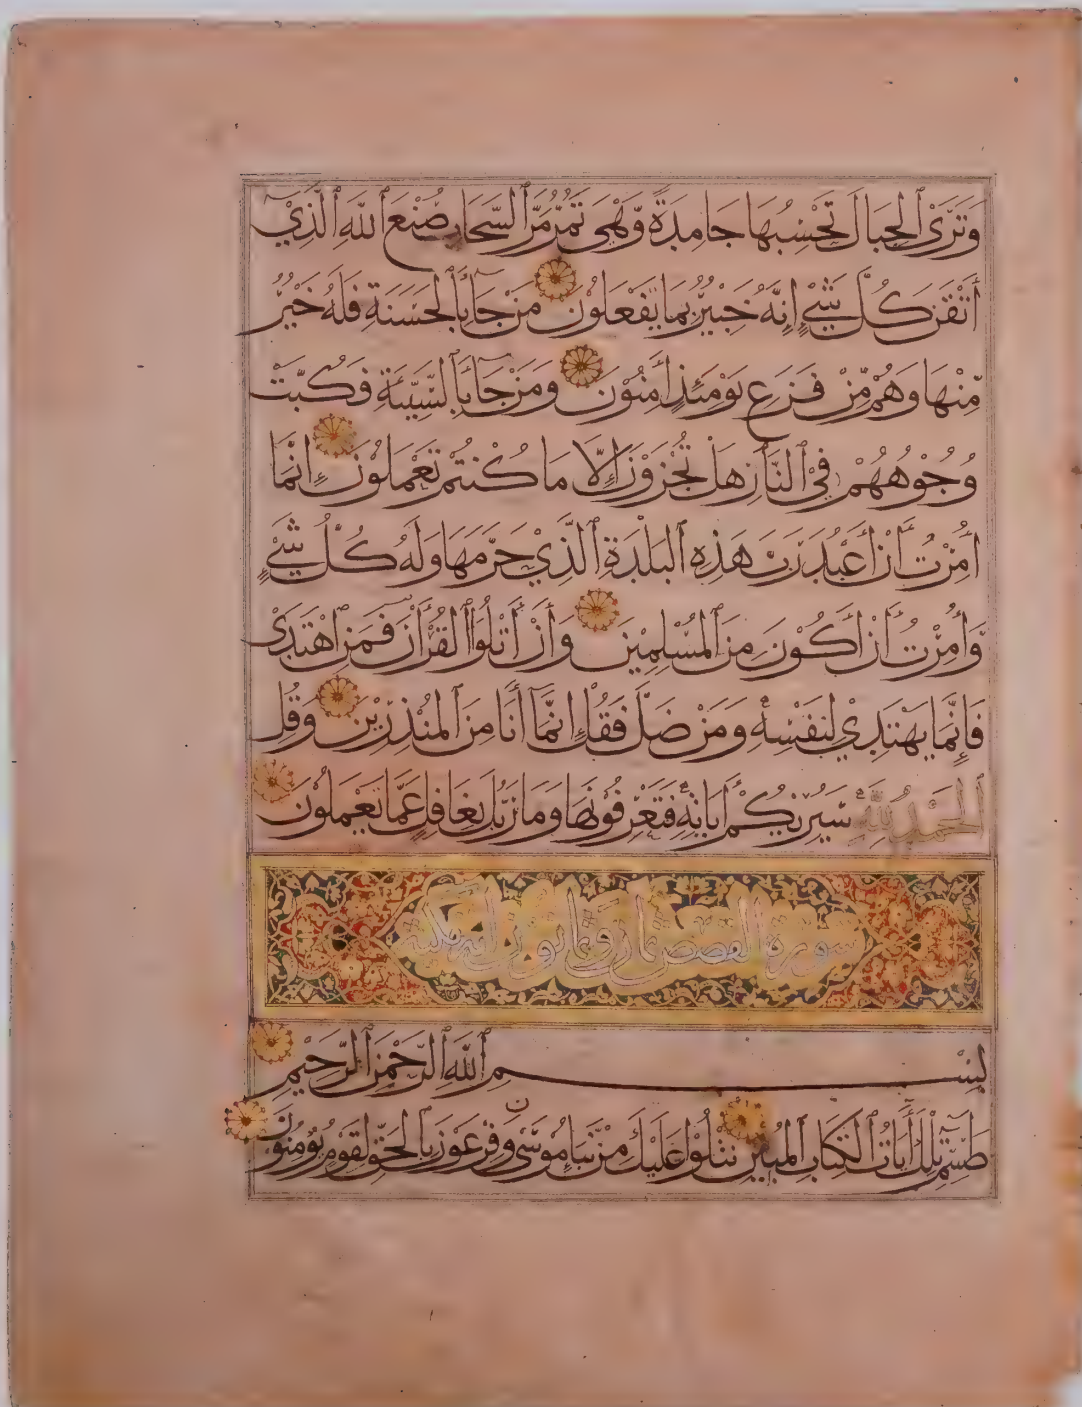 وَتَرَى ٱلْجِبَالَ تَحْسِبُهَا جَامِدَةً وَّهْيَ تَمُرُّ مَرَّ ٱلسَّحَابِ صُنْعَ ٱللَّهِ ٱلَّذِيْ
أَتْقَنَ كُلَّ شَيْءٍ إِنَّهُ خَبِيْرٌ بِمَا يَفْعَلُوْنَ مَنْ جَآءَ بِالْحَسَنَةِ فَلَهُ خَيْرٌ
مِّنْهَا وَهُمْ مِّنْ فَزَعِ يَوْمَئِذٍ اٰمِنُوْنَ وَمَنْ جَآءَ بِالسَّيِّئَةِ فَكُبَّتْ
وُجُوْهُهُمْ فِي ٱلنَّارِ هَلْ تُجْزَوْنَ إِلَّا مَا كُنْتُمْ تَعْمَلُوْنَ إِنَّمَا
أُمِرْتُ أَنْ أَعْبُدَ رَبَّ هَذِهِ ٱلْبَلْدَةِ ٱلَّذِيْ حَرَّمَهَا وَلَهُ كُلُّ شَيْءٍ
وَّأُمِرْتُ أَنْ أَكُوْنَ مِنَ ٱلْمُسْلِمِيْنَ وَأَنْ أَتْلُوَا ٱلْقُرْأٰنَ فَمَنِ ٱهْتَدَى
فَإِنَّمَا يَهْتَدِيْ لِنَفْسِهِ وَمَنْ ضَلَّ فَقُلْ إِنَّمَآ أَنَا مِنَ ٱلْمُنْذِرِيْنَ وَقُلِ
ٱلْحَمْدُ لِلَّهِ سَيُرِيْكُمْ أٰيَاتِهِ فَتَعْرِفُوْنَهَا وَمَا رَبُّكَ بِغَافِلٍ عَمَّا تَعْمَلُوْنَ
سورة القصص ثمان وثمانون اية مكية
بِسْمِ ٱللَّهِ ٱلرَّحْمٰنِ ٱلرَّحِيْمِ
طٰسٓمّٓ تِلْكَ أٰيَاتُ ٱلْكِتَابِ ٱلْمُبِيْنِ نَتْلُوْا عَلَيْكَ مِنْ نَّبَإِ مُوْسَى وَفِرْعَوْنَ بِالْحَقِّ لِقَوْمٍ يُّوْمِنُوْنَ